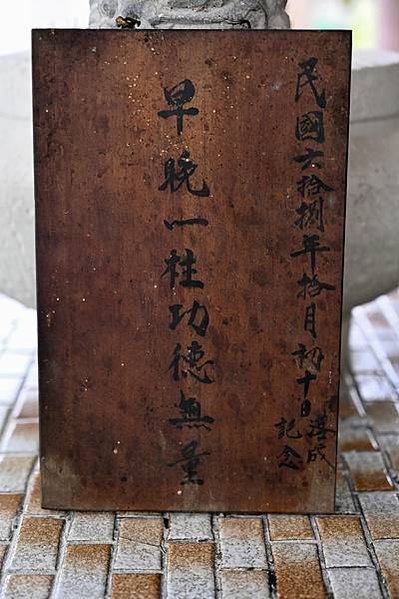 民國六拾捌年拾月初十日落成
記念
早晚一柱功德無量